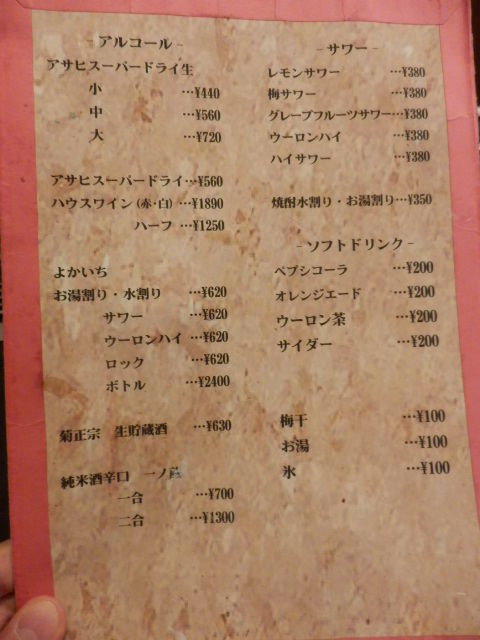 - アルコール -
アサヒスーパードライ生
小 …¥440
中 …¥560
大 …¥720
アサヒスーパードライ…¥560
ハウスワイン (赤・白) …¥1890
ハーフ …¥1250
よかいち
お湯割り・水割り …¥620
サワー …¥620
ウーロンハイ …¥620
ロック …¥620
ボトル …¥2400
菊正宗 生貯蔵酒 …¥630
純米酒辛口 一ノ蔵
一合 …¥700
二合 …¥1300
- サワー -
レモンサワー …¥380
梅サワー …¥380
グレープフルーツサワー…¥380
ウーロンハイ …¥380
ハイサワー …¥380
焼酎水割り・お湯割り…¥350
- ソフトドリンク -
ペプシコーラ …¥200
オレンジエード …¥200
ウーロン茶 …¥200
サイダー …¥200
梅干 …¥100
お湯 …¥100
氷 …¥100